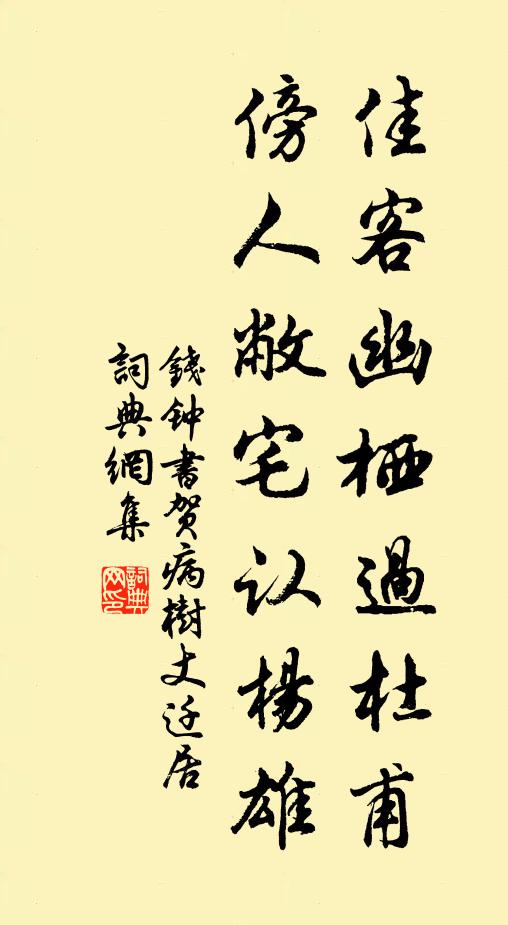 佳客幽栖過杜甫
傍人敝宅认楊雄
錢钟書賀病樹丈迁居
詞典網集
詞典
网印